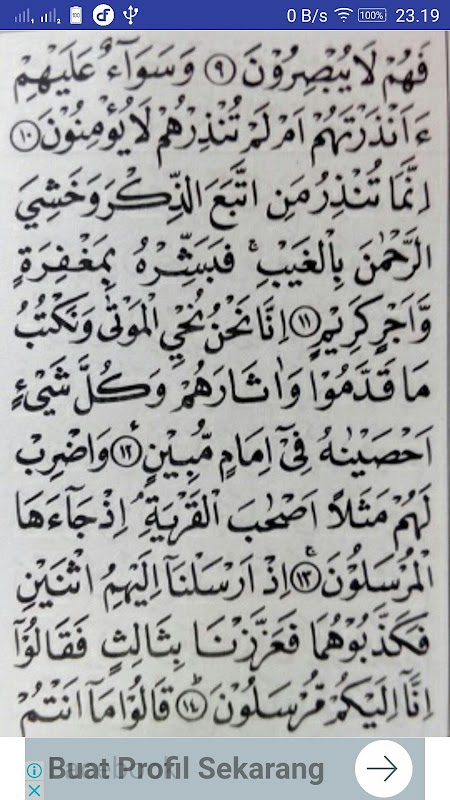 0 B/s 100% 23.19
فَهُمْ لَا يُبْصِرُوْنَ ﴿٩﴾ وَسَوَآءٌ عَلَيْهِمْ
ءَاَنْذَرْتَهُمْ اَمْ لَمْ تُنْذِرْهُمْ لَا يُؤْمِنُوْنَ ﴿١٠﴾
اِنَّمَا تُنْذِرُ مَنِ اتَّبَعَ الذِّكْرَ وَخَشِيَ
الرَّحْمٰنَ بِالْغَيْبِ ۚ فَبَشِّرْهُ بِمَغْفِرَةٍ
وَّاَجْرٍ كَرِيْمٍ ﴿١١﴾ اِنَّا نَحْنُ نُحْيِ الْمَوْتٰى وَنَكْتُبُ
مَا قَدَّمُوْا وَاٰثَارَهُمْ وَكُلَّ شَيْءٍ
اَحْصَيْنٰهُ فِيْٓ اِمَامٍ مُّبِيْنٍ ﴿١٢﴾ وَاضْرِبْ
لَهُمْ مَثَلًا اَصْحٰبَ الْقَرْيَةِ ۘ اِذْ جَآءَهَا
الْمُرْسَلُوْنَ ﴿١٣﴾ اِذْ اَرْسَلْنَآ اِلَيْهِمُ اثْنَيْنِ
فَكَذَّبُوْهُمَا فَعَزَّزْنَا بِثَالِثٍ فَقَالُوْٓا
اِنَّآ اِلَيْكُمْ مُّرْسَلُوْنَ ﴿١٤﴾ قَالُوْا مَآ اَنْتُمْ
Buat Profil Sekarang